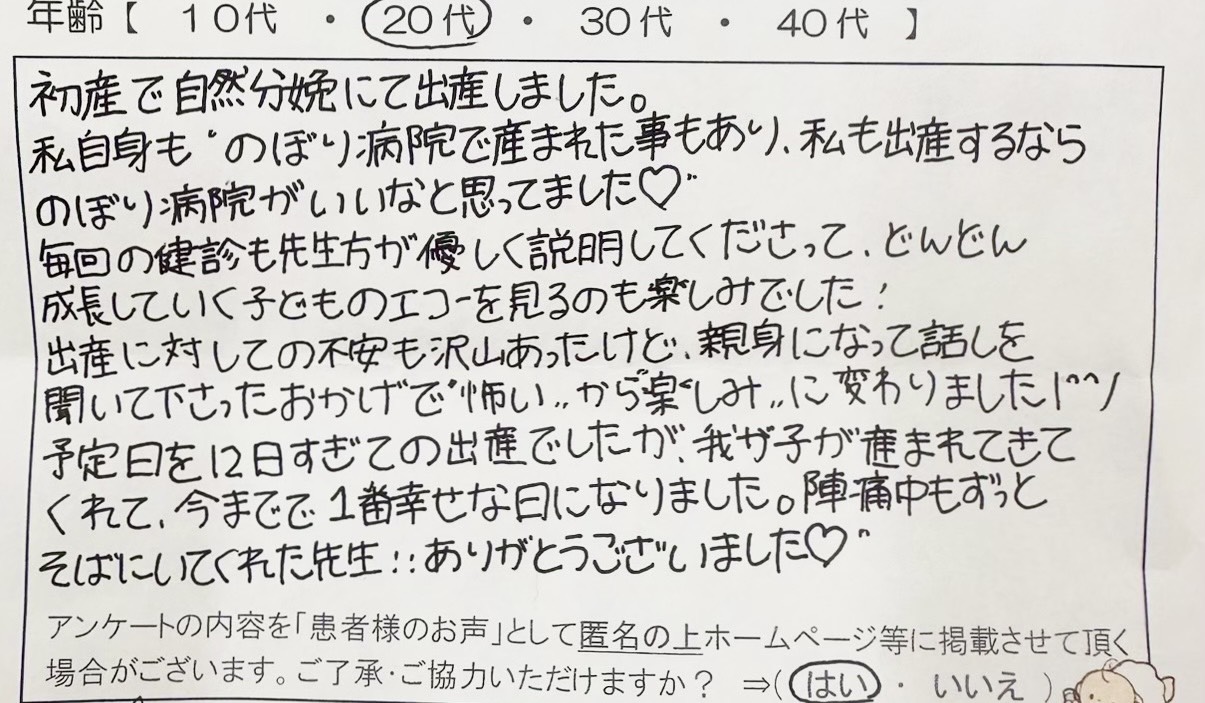 年齢【 10代 ・ 20代 ・ 30代 ・ 40代 】
初産で自然分娩にて出産しました。
私自身も〝のぼり病院で産まれた事もあり、私も出産するなら
のぼり病院がいいなと思ってました♡〃
毎回の健診も先生方が優しく説明してくださって、どんどん
成長していく子どものエコーを見るのも楽しみでした!
出産に対しての不安も沢山あったけど、親身になって話しを
聞いて下さったおかげで〝怖い〟から〝楽しみ〟に変わりました!^^ノ
予定日を12日すぎての出産でしたが、我が子が産まれてきて
くれて、今までで1番幸せな日になりました。陣痛中もずっと
そばにいてくれた先生!!ありがとうございました♡〃
アンケートの内容を「患者様のお声」として匿名の上ホームページ等に掲載させて頂く
場合がございます。ご了承・ご協力いただけますか? ⇒( はい ・ いいえ )